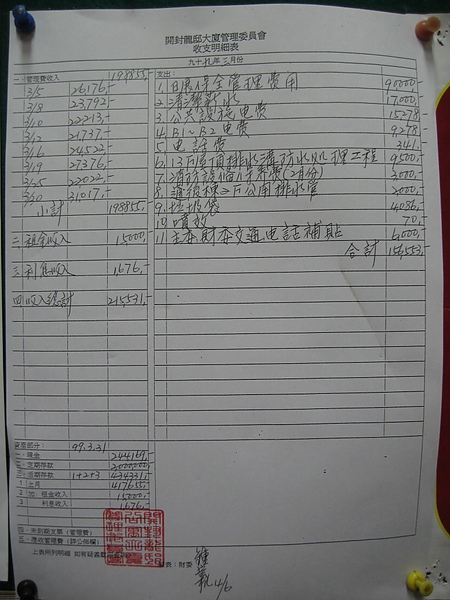 開封龍邸大廈管理委員會
收支明細表
九十九年三月份
一.管理費收入 198855,-
3/5 26176,-
3/8 23,792,-
3/10 22,213,-
3/12 21,737,-
3/16 24,522,-
3/19 27,376,-
3/25 22,022,-
3/30 31,017,-
小計 198855,-
二.租金收入 15000,-
三.利息收入 1,676,-
四.收入總計 215,531,-
支出:
保全管理費用 90000-
2. 清潔薪水 17,000-
3. 公共設施電費 15278-
4. B1~B2電費 9,278-
5. 電話費 341-
6. 13戶屋頂排水溝防水處理工程 9,500-
7. 消防設備保養費(2月份) 3,000-
2戶公用排水管 2000-
9. 垃圾袋 4,086,-
10. 70,-
11. 主委財委交通電話補貼 6,000-
合計 156,553,-
資產部分: 99.3.31
一、現金 244169,-
二、定期存款 2000000,-
三、活期存款 1+2+3 434331,-
1 上月 417655,-
2 加:租金收入 15000,-
3 利息收入 1,676,-
四、未到期支票(管理費)
五、應收管理費(詳公佈欄)
上表所列明細 如有疑義
財委
4/6